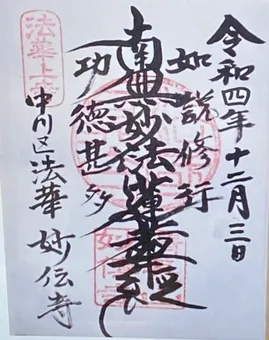 令和四年十二月三日
如説修行
南無妙法蓮華経
功徳甚多
中川区法華 妙伝寺